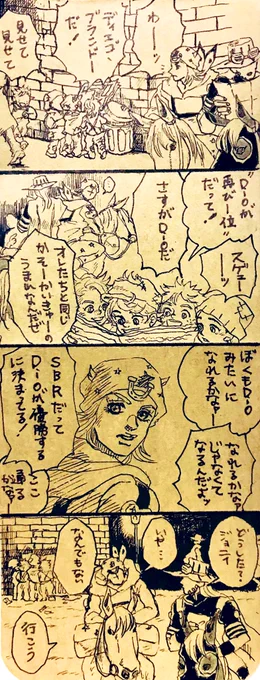 わーッ
ディエゴ・
ブランドー
だ！
見せて
見せて
"Dioが
再び1位"
だって！
スゲェー
ーッ
さすがDioだ
オレたちと同じ
かそーかいきゅーの
うまれなんだぜ
ぼくもDio
みたいに
なれるかなァー
なれるかな
じゃなくて
なるんだよッ
SBRだって
Dioが優勝する
に決まてる！
ここ
通る
かなァ
どうした？
ジョニィ
いや…
なんでもない
行こう